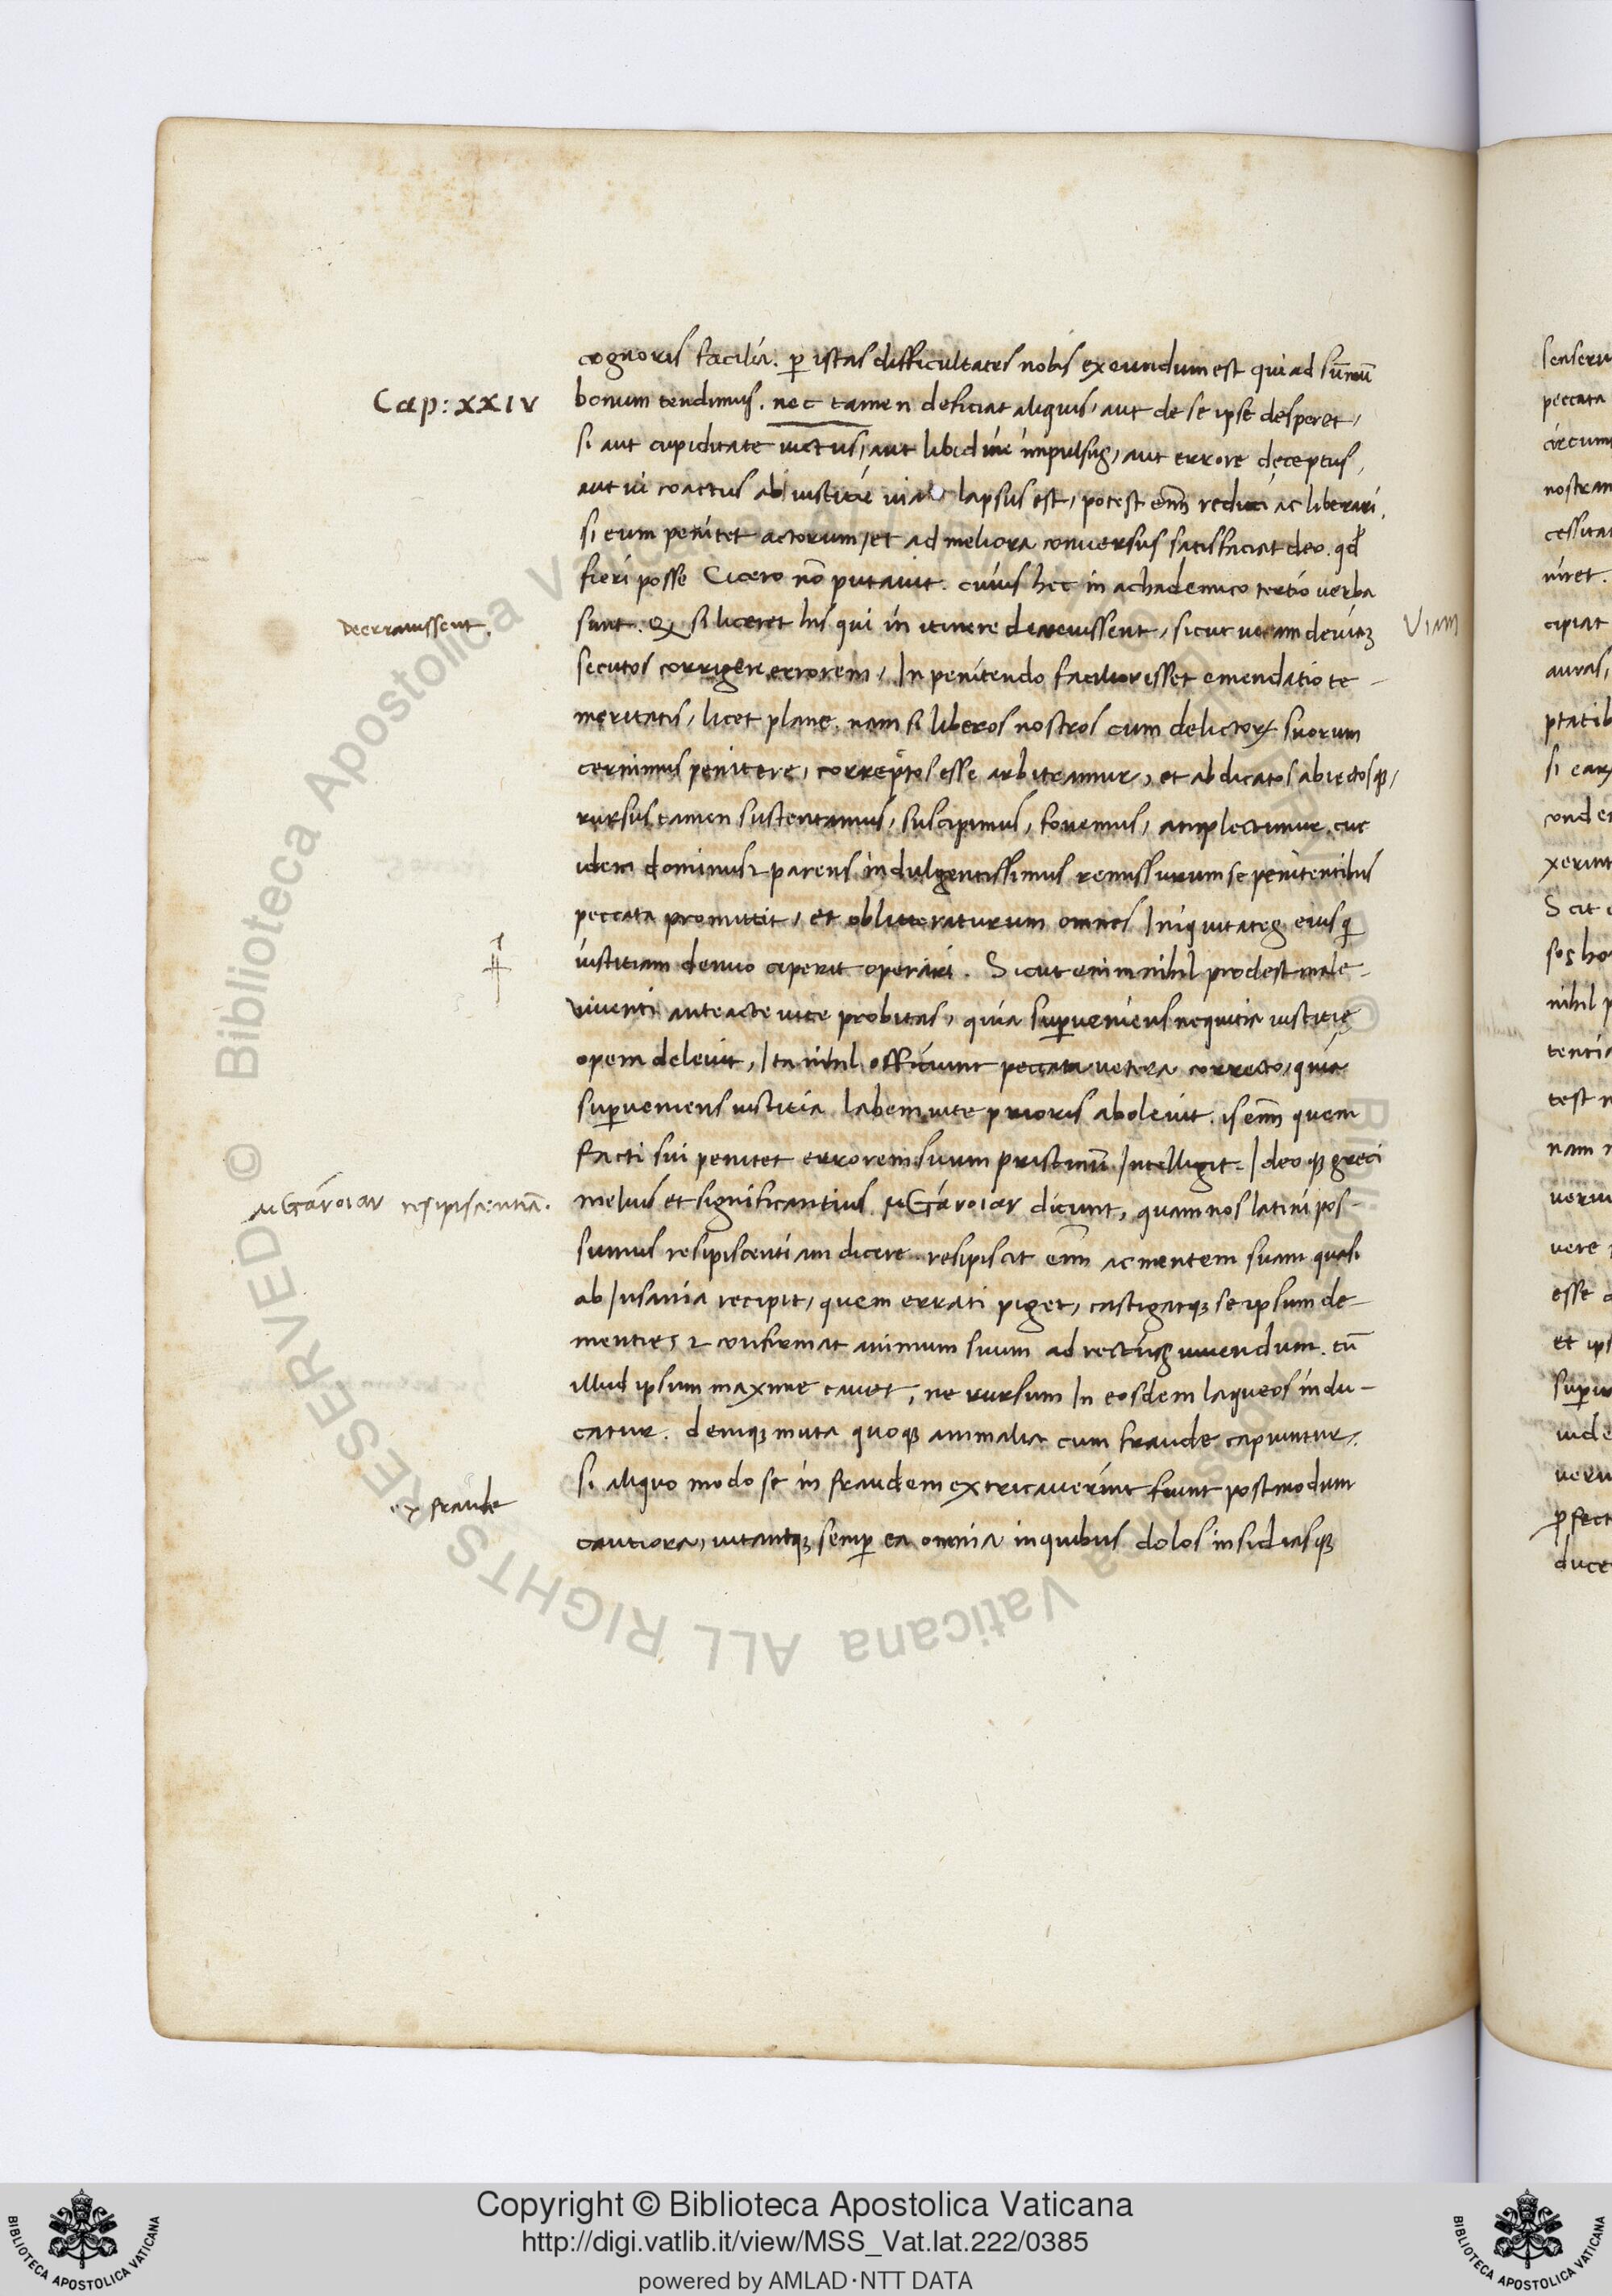 cognoris facilia. ꝑ istas difficultates nobis exeundum est qui ad su̅mu̅
Cap: XXIV
bonum tendimus. nec tamen deficiat aliquis, aut de se ipse desperet,
si aut cupiditate uictus, aut libidine impulsus, aut errore deceptus,
aut ui coactus ab iustitie uia lapsus est, potest eni̅ reduci ac liberari,
si eum penitet actorum, et ad meliora conuersus satisfaciat deo. qd̅
fieri posse Cicero no̅ putauit. cuius hec in achademico tertio uerba
Deerrauissent.
sunt. Qꝫ si liceret his qui in itinere deerauissent, sicut ueram deuiaꝫ
Viam
secutos corrigere errorem, In penitendo facilior esset emendatio te-
meritatis, licet plane. nam si liberos nostros cum delictoꝝ suorum
cernimus penitere, correptos esse arbitramur, et abdicatos abiectosqꝫ,
rursus tamen sustentamus, suscipimus, fouemus, amplectimur. cur
idem dominus & parens indulgentissimus remissurum se penitentibus
peccata promittit, et oblitteraturum omnes Iniquitates eius q̇
iustitiam denuo ceperit operari. Sicut enim nihil prodest male-
uiuenti anteacte uite probitas, quia suꝑueniens nequitia iustitie̜
opem deleuit, Ita nihil officiunt peccata uetera correcto, quia
suꝑueniens iustitia labem uite prioris aboleuit. is eni̅ quem
facti sui penitet errorem suum pristinu̅ Intelligit. Ideoqꝫ greci
μετάνοιαν resipiscentia̅.
melius et significantius μετάνοιαν dicunt, quam nos latini pos-
sumus resipiscentiam dicere. resipiscit eni̅ ac mentem suam quasi
ab Insania recipit, quem errati piget, castigatqꝫ se ipsum de-
mentie, & confirmat animum suum ad rectius uiuendum. tu̅
illud ipsum maxime cauet, ne rursum In eosdem laqueos indu-
catur. deniqꝫ muta quoqꝫ animalia cum fraude capiuntur,
si aliquo modo se in fraudem extricauerint fiunt postmodum
ex fraude
cautiora, uitantqꝫ semꝑ ea omnia in quibus dolos insidiasqꝫ
Copyright © Biblioteca Apostolica Vaticana
http://digi.vatlib.it/view/MSS_Vat.lat.222/0385
powered by AMLAD·NTT DATA